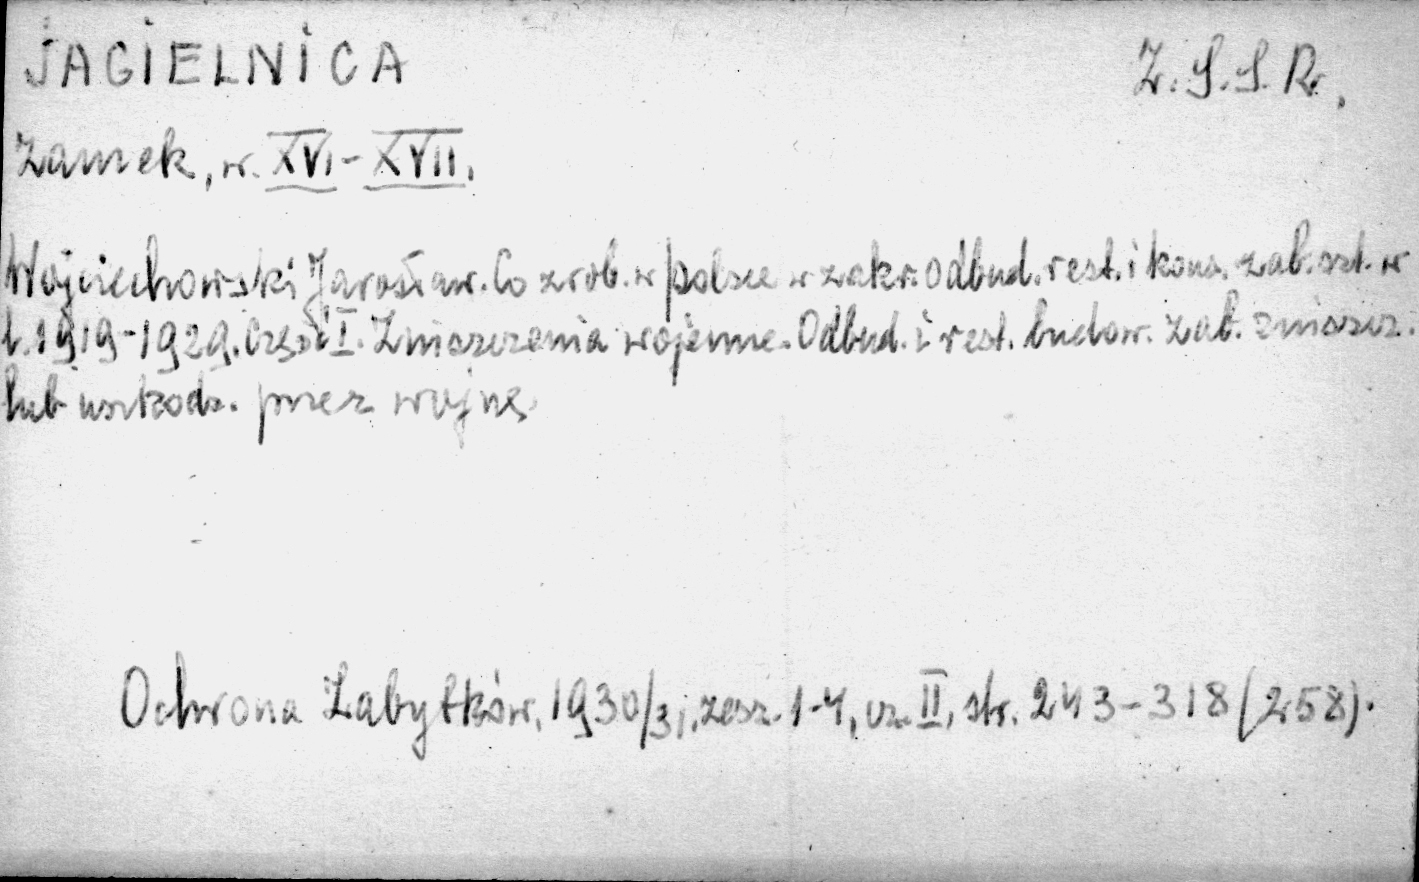 JAGIELNICA Z.S.S.R.
Zamek, w. XVI-XVII.
Wojciechowski Jarosław. Co zrob. w polsce w zakr. odbud. rest. i kons. zab. szt. w
l. 1919-1929. Część I. Zniszczenia wojenne. Odbud. i rest. budow. zab. zniszcz.
lub uszkodz. przez wojnę
Ochrona Zabytków, 1930/31, zesz. 1-4, cz. II, str. 243-318 (258).